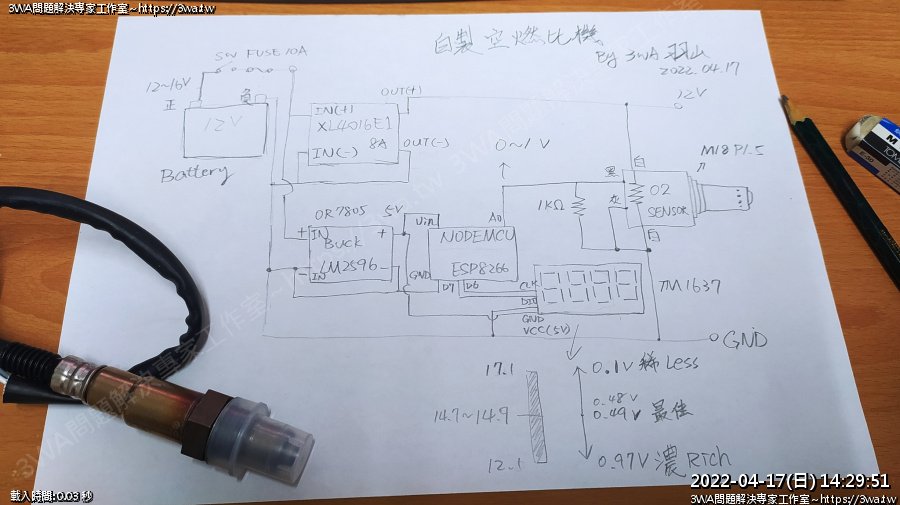 3WA問題解決專家工作室~https://3wa.tw
自製空燃比機
By 3WA 羽山
2022.04.17
SW FUSE 10A
12~16V
正
負
12V
Battery
OUT(+)
IN(+)
XL4016E1
8A
IN(-)
OUT(-)
0~1V
12V
白
M18 P1.5
黑
O2
SENSOR
灰
白
1KΩ
OR 7805
5V
Vin
A0
+
IN
+
BUCK
NODEMCU
LM2596
-
IN
-
GND
ESP8266
D7
D6
CLK
DIO
GND
VCC(5V)
TM1637
GND
17.1
0.1V 稀 Less
14.7~14.9
0.48V
0.49V 最佳
12.1
0.97V 濃 Rich
載入時間:0.03 秒
2022-04-17(日) 14:29:51
3WA問題解決專家工作室~https://3wa.tw